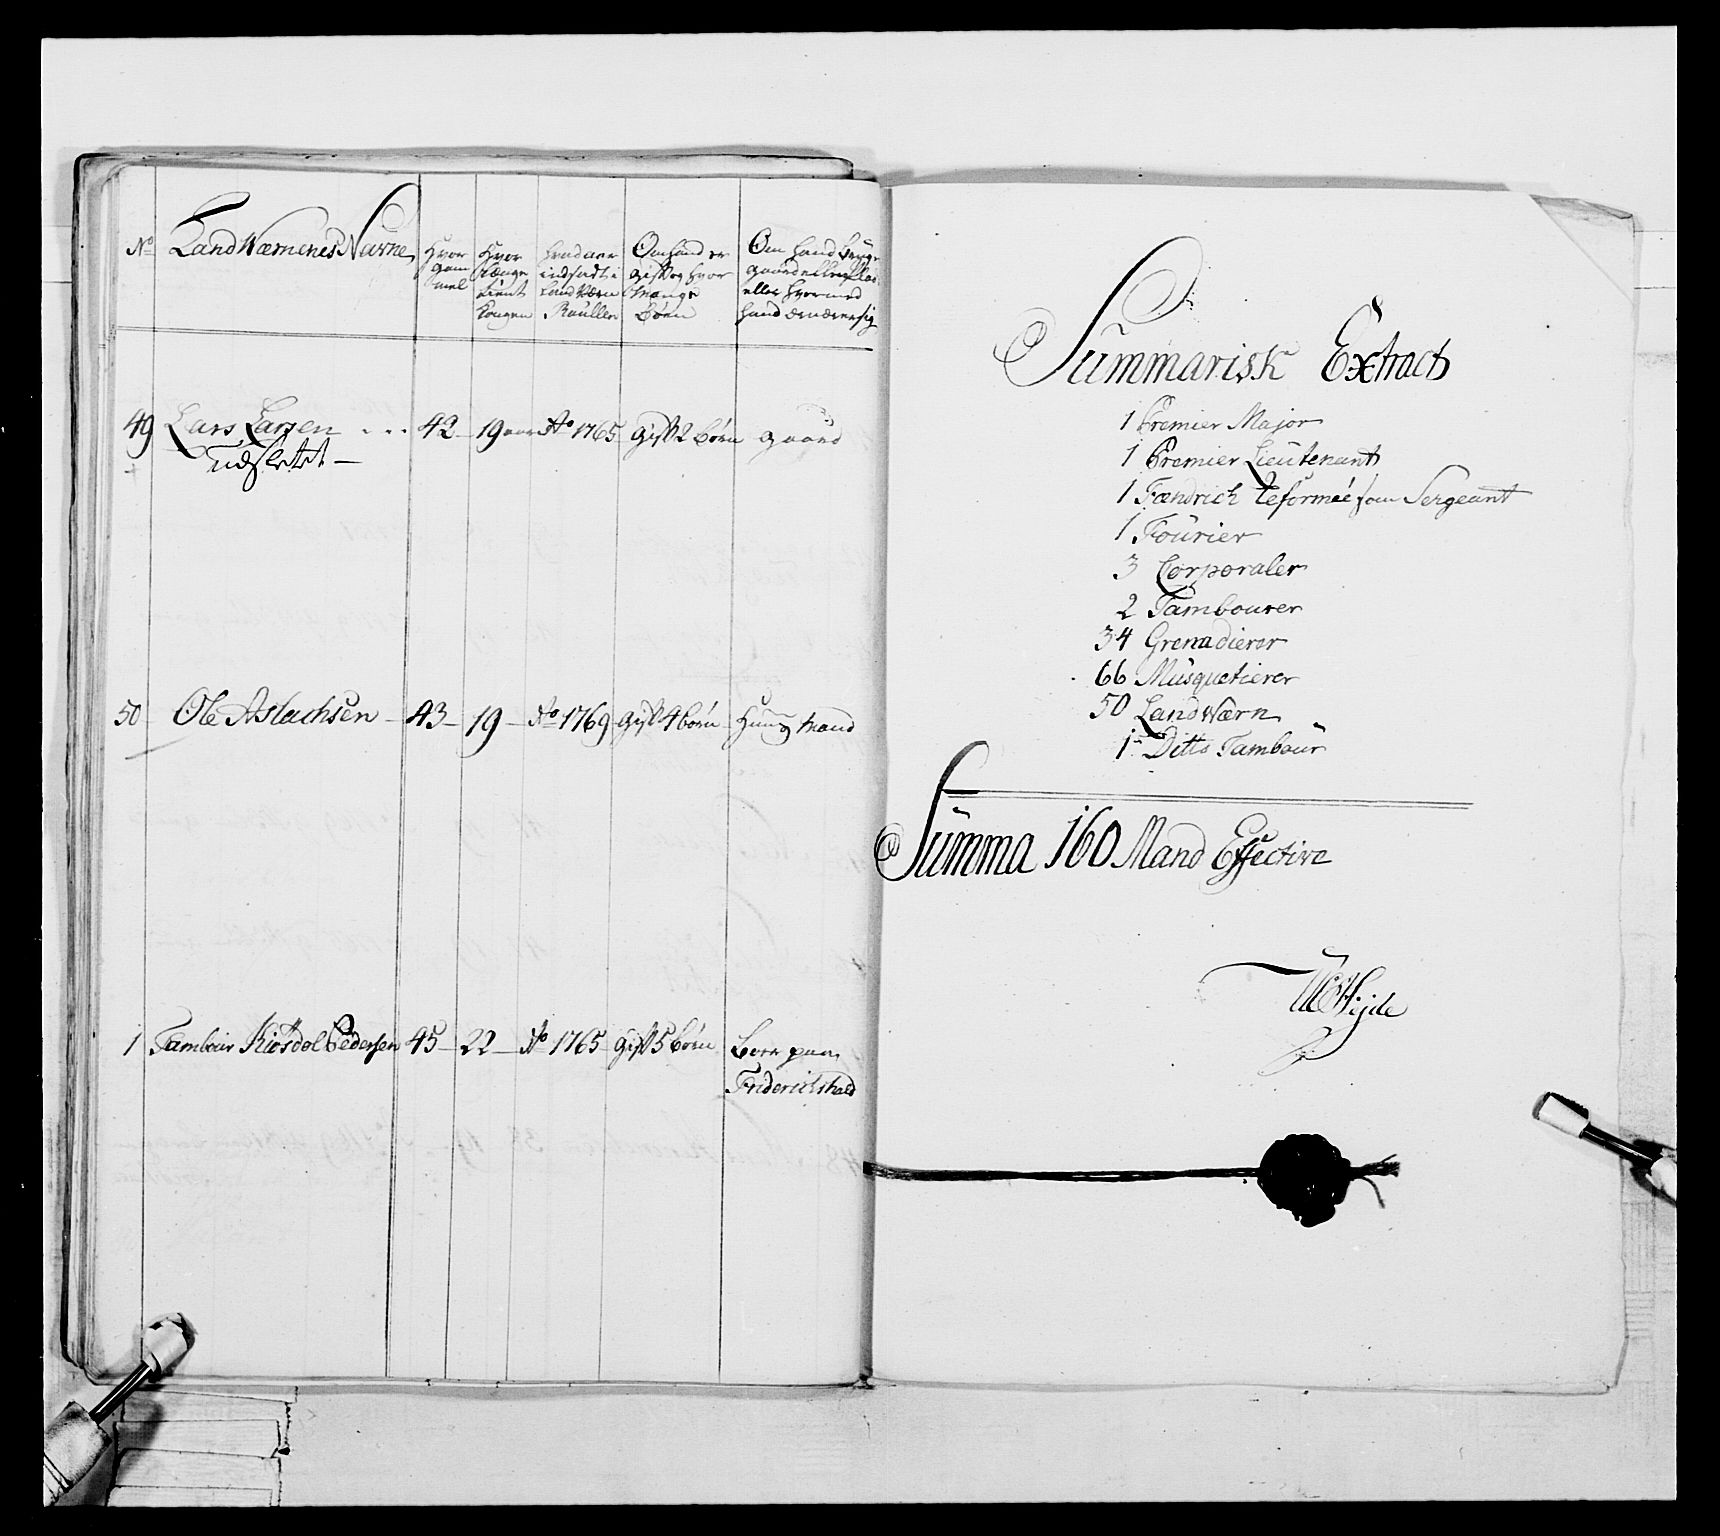 No
Land Wærnenes Navne
Hvor
gam
mel
Hvor
længe
tient
Kongen
hvad aar
indsadt i
LandVærn
Roullen
Om hand er
gift og hvor
mange
børn
Om hand bruger
gaard eller
eller hvormed
hand ernærer sig
49 Lars Larsen . . . 42 19 aar Ao 1765 gift 2 børn gaard
udslettet
50 Ole Aslachsen 43 19 Ao 1769 gift 4 børn Huusmand
1 Tambour Pedersen 45 22 Ao 1765 gift 5 børn boer paa
Friderichshald
Summarisk Extract
1 Premier Major
1 Premier Lieutenant
1 Fændrich Reformeé som Sergeant
1 Fourier
3 Corporaler
2 Tambourer
34 Grenadierer
66 Musquetierer
50 Land Wærn
1 Ditto Tambour
Summa 160 Mand Effective